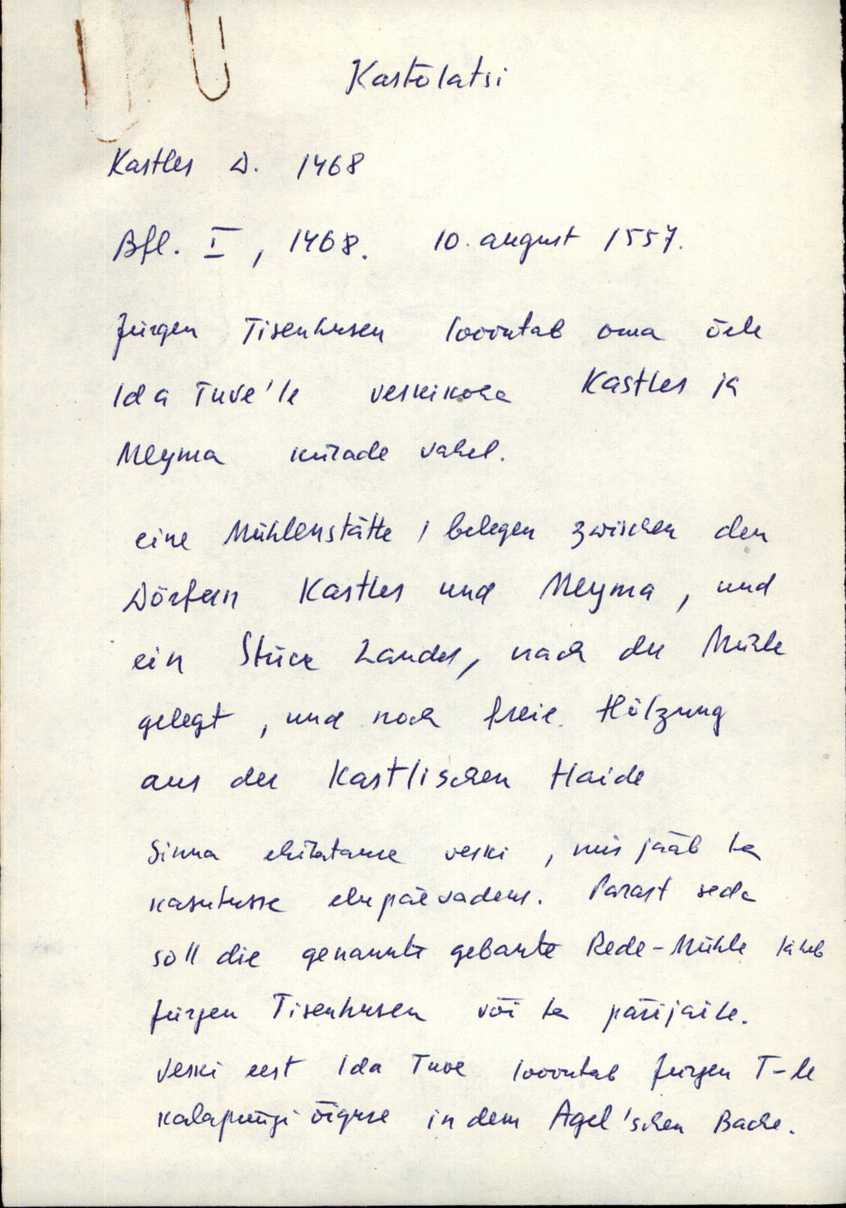 Kastolatsi
Kastles D. 1468
Bfl. I, 1468. 10. august 1557.
Jürgen Tisenhusen loovutab oma õele
Ida Tuve'le veskikoha Kastles ja
Meyma külade vahel.
eine Mühlenstätte, belegen zwischen den
Dörfern Kastles und Meyma, und
ein Stück Landes, nach der Mühle
gelegt, und noch freie Hölzung
aus der Kastlischen Haide
Sinna ehitatakse veski, mis jääb ta
kasutusse elupäevadeks. Pärast seda
soll die genannte gebaute Rede-Mühle läheb
Jürgen Tisenhusen või ta pärijaile.
Veski eest Ida Tuve loovutab Jürgen T-le
kalapüügi õiguse in dem Agel'schen Bache.